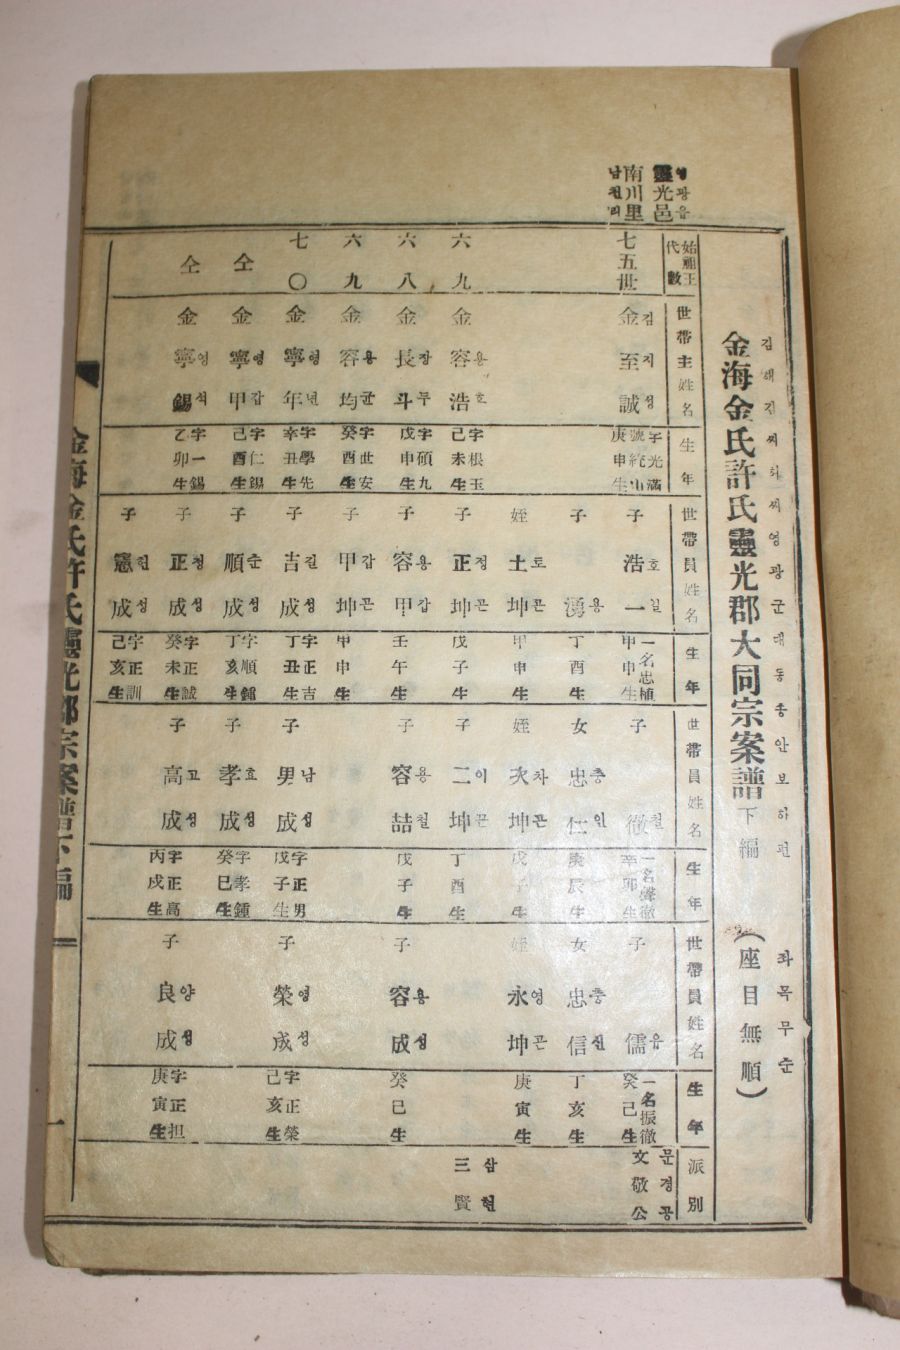 金海金氏許氏靈光郡大同宗案譜下編 (座目無順)
김해김씨허씨영광군대동종안보하편 좌목무순
靈光邑 영광읍
南川里 남천리
始祖王代數
世帶主姓名
生年
世帶員姓名
生年
世帶員姓名
生年
世帶員姓名
生年
派別
七五世
金至誠 김지성
字光滿 號統山 庚申生
子 浩一 호일
一名忠植 甲申生
子 徹 철
一名聲徹 辛卯生
子 儒 유
一名振徹 癸巳生
文敬公 문경공
子 湧 용
丁酉生
女 忠仁 충인
庚辰生
女 忠信 충신
丁亥生
姪 土坤 토곤
甲申生
姪 次坤 차곤
戊子生
姪 永坤 영곤
庚寅生
六九
金容浩 용호
字根玉 己未生
子 正坤 정곤
戊子生
子 二坤 이곤
丁酉生
三賢 삼현
六八
金長斗 장두
字碩九 戊申生
子 容甲 용갑
壬午生
子 容喆 용철
戊子生
子 容成 용성
癸巳生
六九
金容均 용균
字世安 癸酉生
子 甲坤 갑곤
甲申生
七〇
金寧年 영년
字學先 辛丑生
子 吉成 길성
字正吉 丁丑生
子 男成 남성
字正男 戊子生
子 榮成 영성
字正榮 己亥生
仝
金寧甲 영갑
字仁錫 己酉生
子 順成 순성
字順鍾 丁亥生
子 孝成 효성
字孝鍾 癸巳生
仝
金寧錫 영석
字一錫 乙卯生
子 正成 정성
字正誠 癸未生
子 高成 고성
字正高 丙戌生
子 良成 양성
字正担 庚寅生
子 憲成 헌성
字正訓 己亥生
金海金氏許氏靈光郡宗案譜下編
一